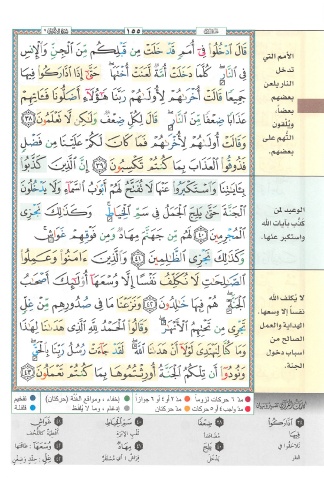 ١٥٥
قَالَ ٱدْخُلُوا۟ فِىٓ أُمَمٍ قَدْ خَلَتْ مِن قَبْلِكُم مِّنَ ٱلْجِنِّ وَٱلْإِنسِ
فِى ٱلنَّارِ كُلَّمَا دَخَلَتْ أُمَّةٌ لَّعَنَتْ أُخْتَهَا حَتَّىٰٓ إِذَا ٱدَّارَكُوا۟ فِيهَا
جَمِيعًا قَالَتْ أُخْرَىٰهُمْ لِأُولَىٰهُمْ رَبَّنَا هَٰٓؤُلَآءِ أَضَلُّونَا فَـَٔاتِهِمْ
عَذَابًا ضِعْفًا مِّنَ ٱلنَّارِ قَالَ لِكُلٍّ ضِعْفٌ وَلَٰكِن لَّا تَعْلَمُونَ ٣٨
وَقَالَتْ أُولَىٰهُمْ لِأُخْرَىٰهُمْ فَمَا كَانَ لَكُمْ عَلَيْنَا مِن فَضْلٍ
فَذُوقُوا۟ ٱلْعَذَابَ بِمَا كُنتُمْ تَكْسِبُونَ ٣٩ إِنَّ ٱلَّذِينَ كَذَّبُوا۟
بِـَٔايَٰتِنَا وَٱسْتَكْبَرُوا۟ عَنْهَا لَا تُفَتَّحُ لَهُمْ أَبْوَٰبُ ٱلسَّمَآءِ وَلَا يَدْخُلُونَ
ٱلْجَنَّةَ حَتَّىٰ يَلِجَ ٱلْجَمَلُ فِى سَمِّ ٱلْخِيَاطِ وَكَذَٰلِكَ نَجْزِى
ٱلْمُجْرِمِينَ ٤٠ لَهُم مِّن جَهَنَّمَ مِهَادٌ وَمِن فَوْقِهِمْ غَوَاشٍ
وَكَذَٰلِكَ نَجْزِى ٱلظَّٰلِمِينَ ٤١ وَٱلَّذِينَ ءَامَنُوا۟ وَعَمِلُوا۟
ٱلصَّٰلِحَٰتِ لَا نُكَلِّفُ نَفْسًا إِلَّا وُسْعَهَآ أُو۟لَٰٓئِكَ أَصْحَٰبُ
ٱلْجَنَّةِ هُمْ فِيهَا خَٰلِدُونَ ٤٢ وَنَزَعْنَا مَا فِى صُدُورِهِم مِّنْ غِلٍّ
تَجْرِى مِن تَحْتِهِمُ ٱلْأَنْهَٰرُ وَقَالُوا۟ ٱلْحَمْدُ لِلَّهِ ٱلَّذِى هَدَىٰنَا لِهَٰذَا
وَمَا كُنَّا لِنَهْتَدِىَ لَوْلَآ أَنْ هَدَىٰنَا ٱللَّهُ لَقَدْ جَآءَتْ رُسُلُ رَبِّنَا بِٱلْحَقِّ
وَنُودُوٓا۟ أَن تِلْكُمُ ٱلْجَنَّةُ أُورِثْتُمُوهَا بِمَا كُنتُمْ تَعْمَلُونَ ٤٣
الأمم التي
تدخل
النار يلعن
بعضهم
بعضاً،
ويلقون
التهم على
بعضهم.
الوعيد لمن
كذب بآيات الله
واستكبر عنها.
لا يكلف الله
نفساً إلا وسعها،
الهداية والعمل
الصالح من
أسباب دخول
الجنة.
مد ٦ حركات لزوماً
مد ٢ أو ٤ أو ٦ جوازاً
إخفاء، ومواقع الغُنَّة (حركتان)
تفخيم
مد واجب ٤ أو ٥ حركات
مد حركتان
إدغام، وما لا يُلفظ
قلقلة